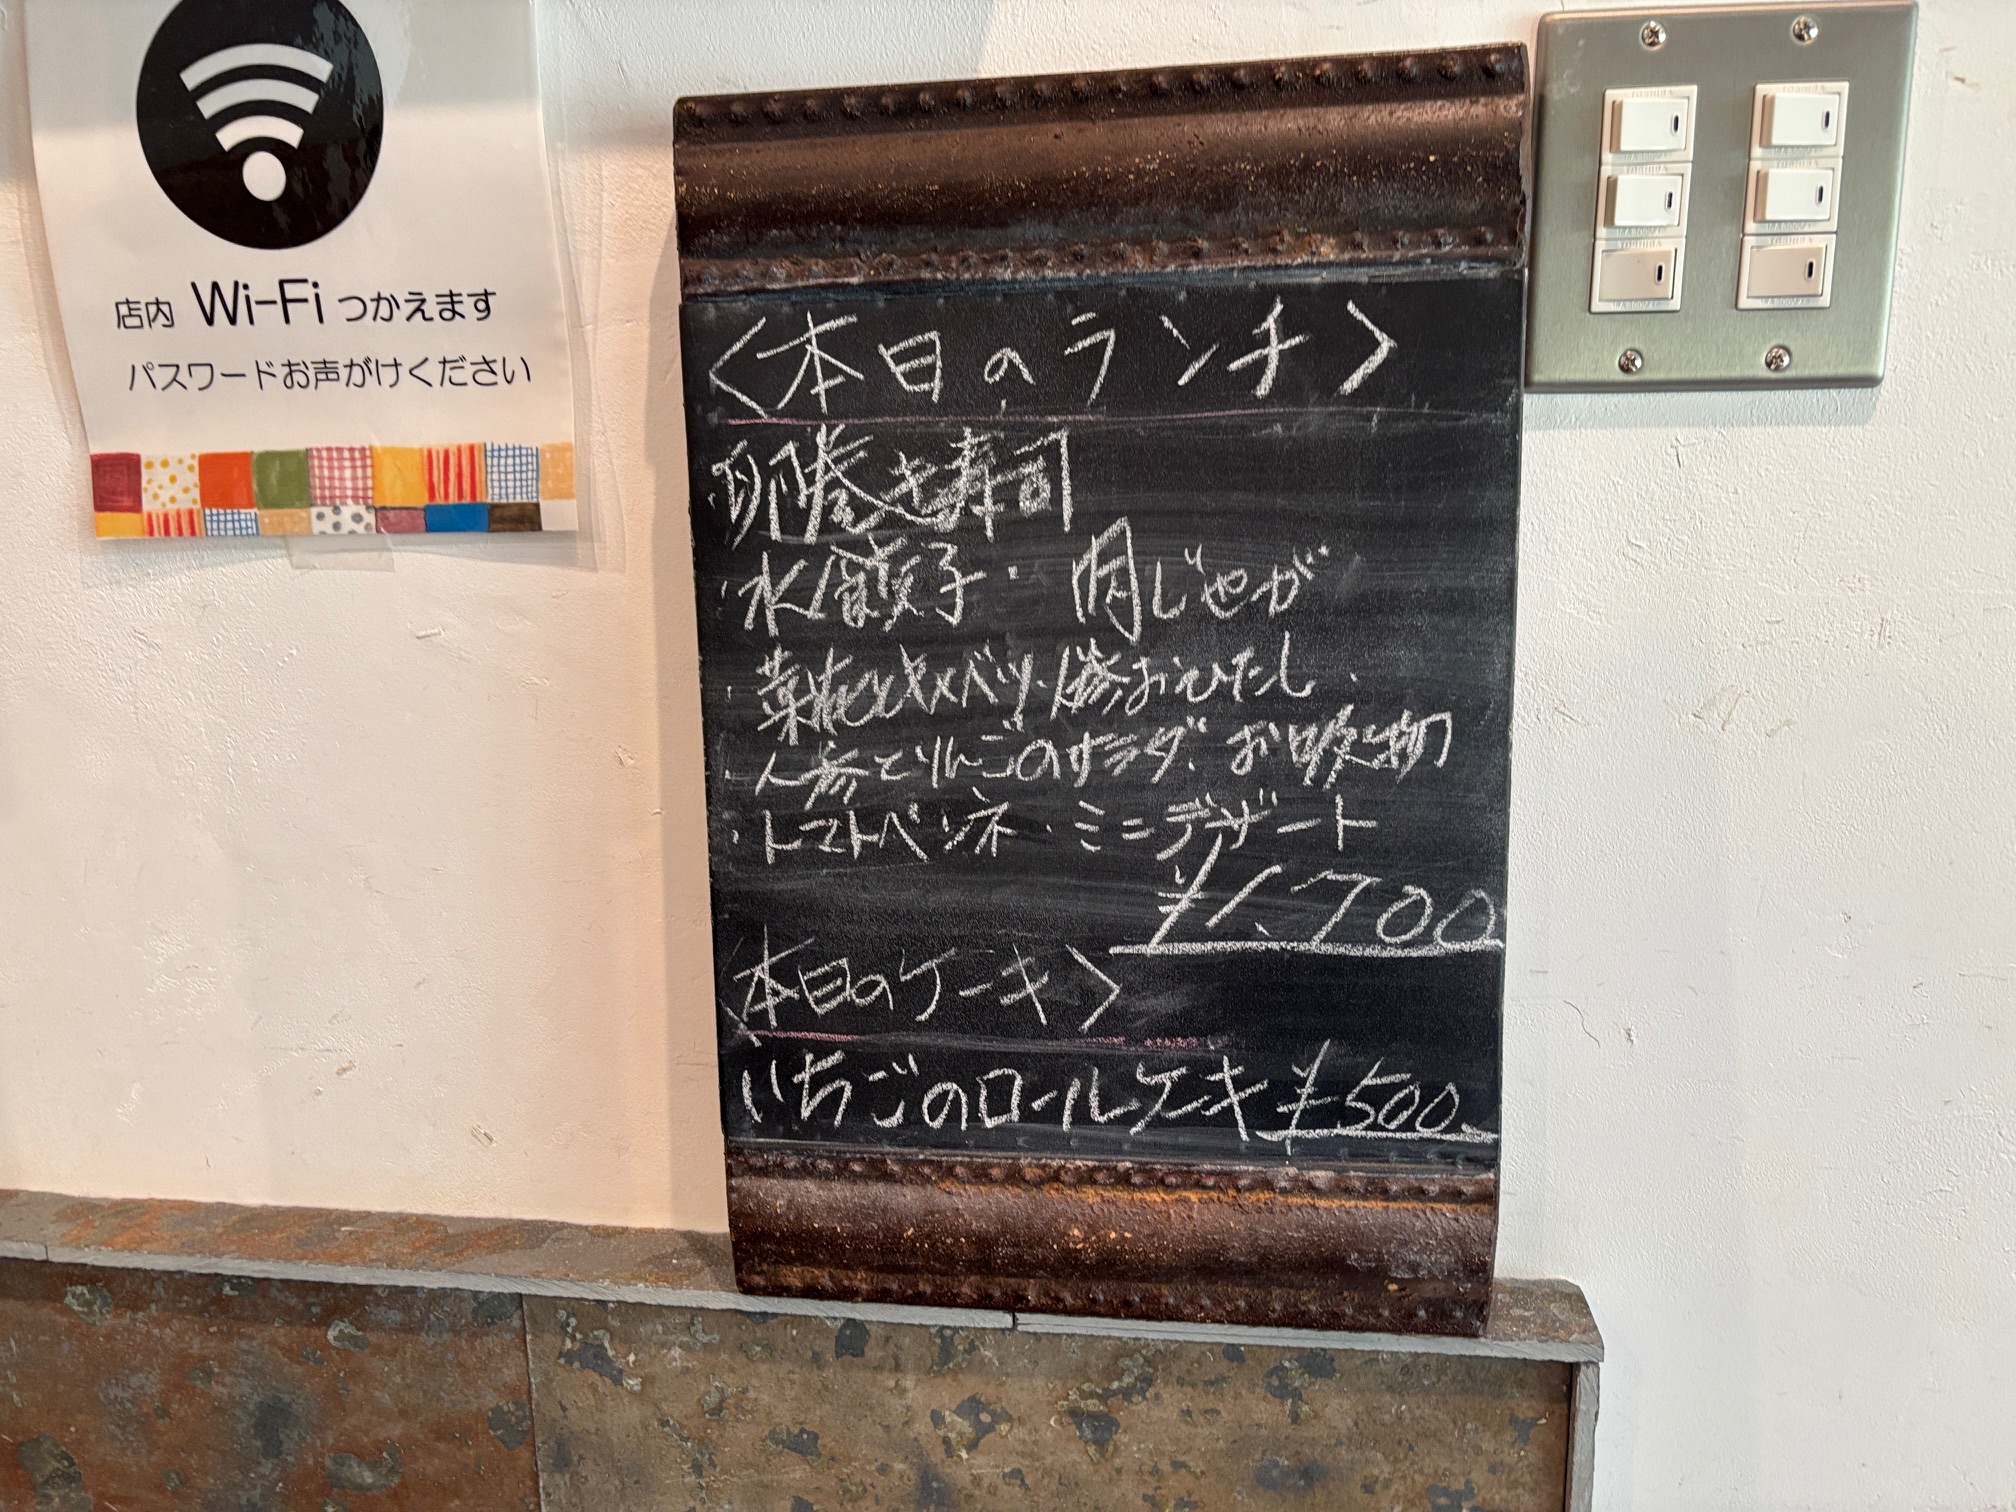 店内 Wi-Fi つかえます
パスワードお声がけください
<本日のランチ>
・卵巻き寿司
・水餃子・肉じゃが
・菜花とキャベツ・人参おひたし・
・人参とりんごのサラダ、お吹物
・トマトペンネ・ミニデザート
¥1,700
<本日のケーキ>
いちごのロールケーキ ¥500